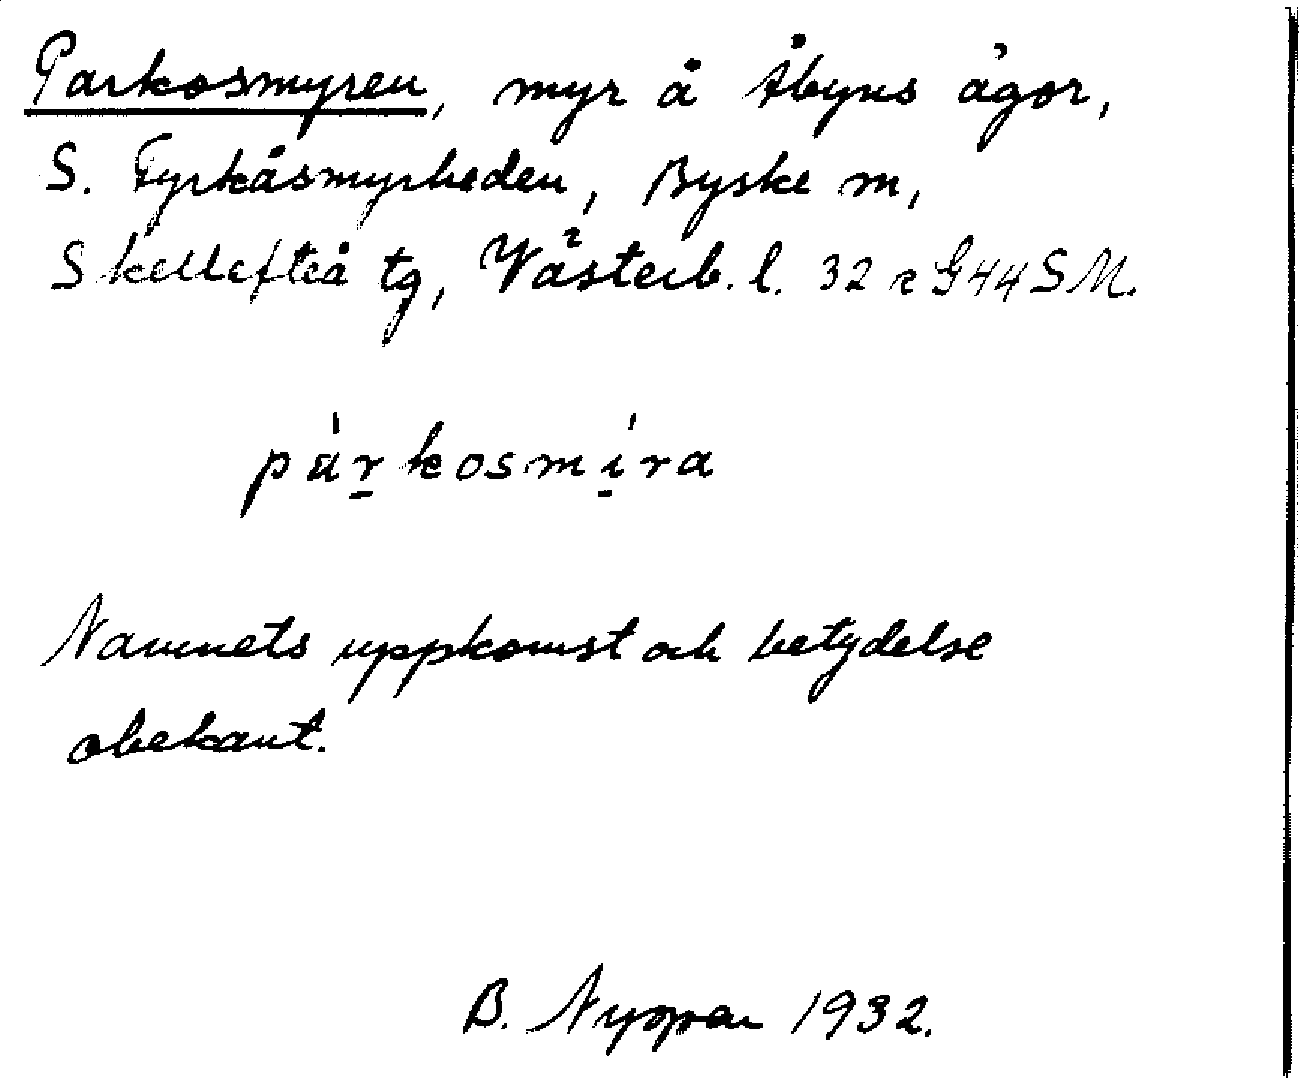 Parkosmyren, myr å Åbyns ägor,
S. Fyrkåsmyrheden, Byske m,
Skellefteå tg, Västerb. l. 32 r G44 SM.
pàr̠kosmi̠ra
Namnets uppkomst och betydelse
obekant.
B. Nygren 1932.